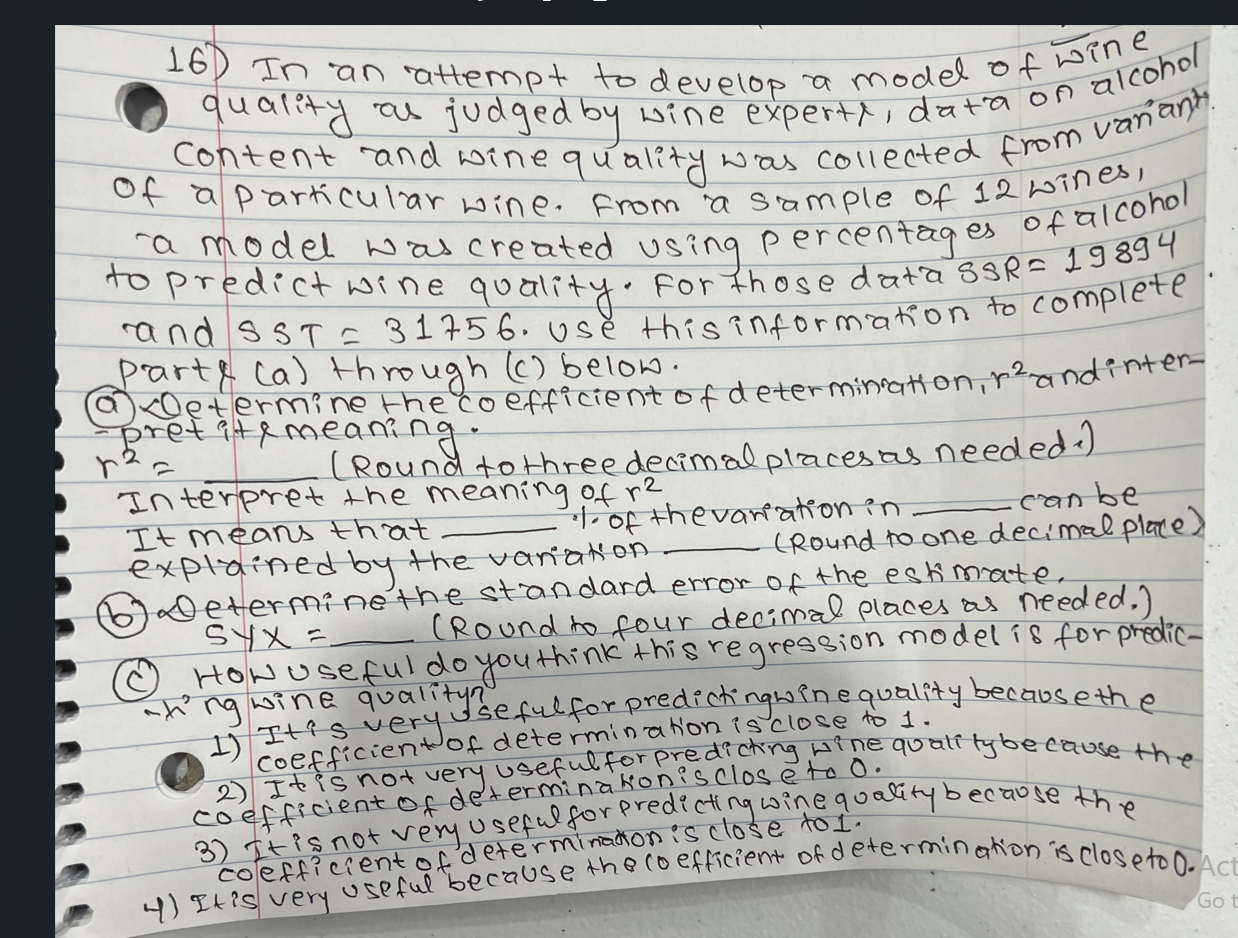 16) In an attempt to develop a model of wine
quality as judged by wine experts, data on alcohol
content and wine quality was collected from variants
of a particular wine. From a sample of 12 wines,
a model was created using percentages of alcohol
to predict wine quality. For those data SSR = 19894
and SST = 31756. Use this information to complete
parts (a) through (c) below.
(a) Determine the coefficient of determination, r² and inter-
-pret its meaning.
r² = ______ (Round to three decimal places as needed.)
Interpret the meaning of r²
It means that ______ % of the variation in ______ can be
explained by the variation ______ (Round to one decimal place)
(b) Determine the standard error of the estimate.
SYX = ____ (Round to four decimal places as needed.)
(c) How useful do you think this regression model is for predic-
-ting wine quality?
1) It is very useful for predicting wine quality because the
coefficient of determination is close to 1.
2) It is not very useful for predicting wine quality because the
coefficient of determination is close to 0.
3) It is not very useful for predicting wine quality because the
coefficient of determination is close to 1.
4) It is very useful because the coefficient of determination is close to 0.
Act
Go t